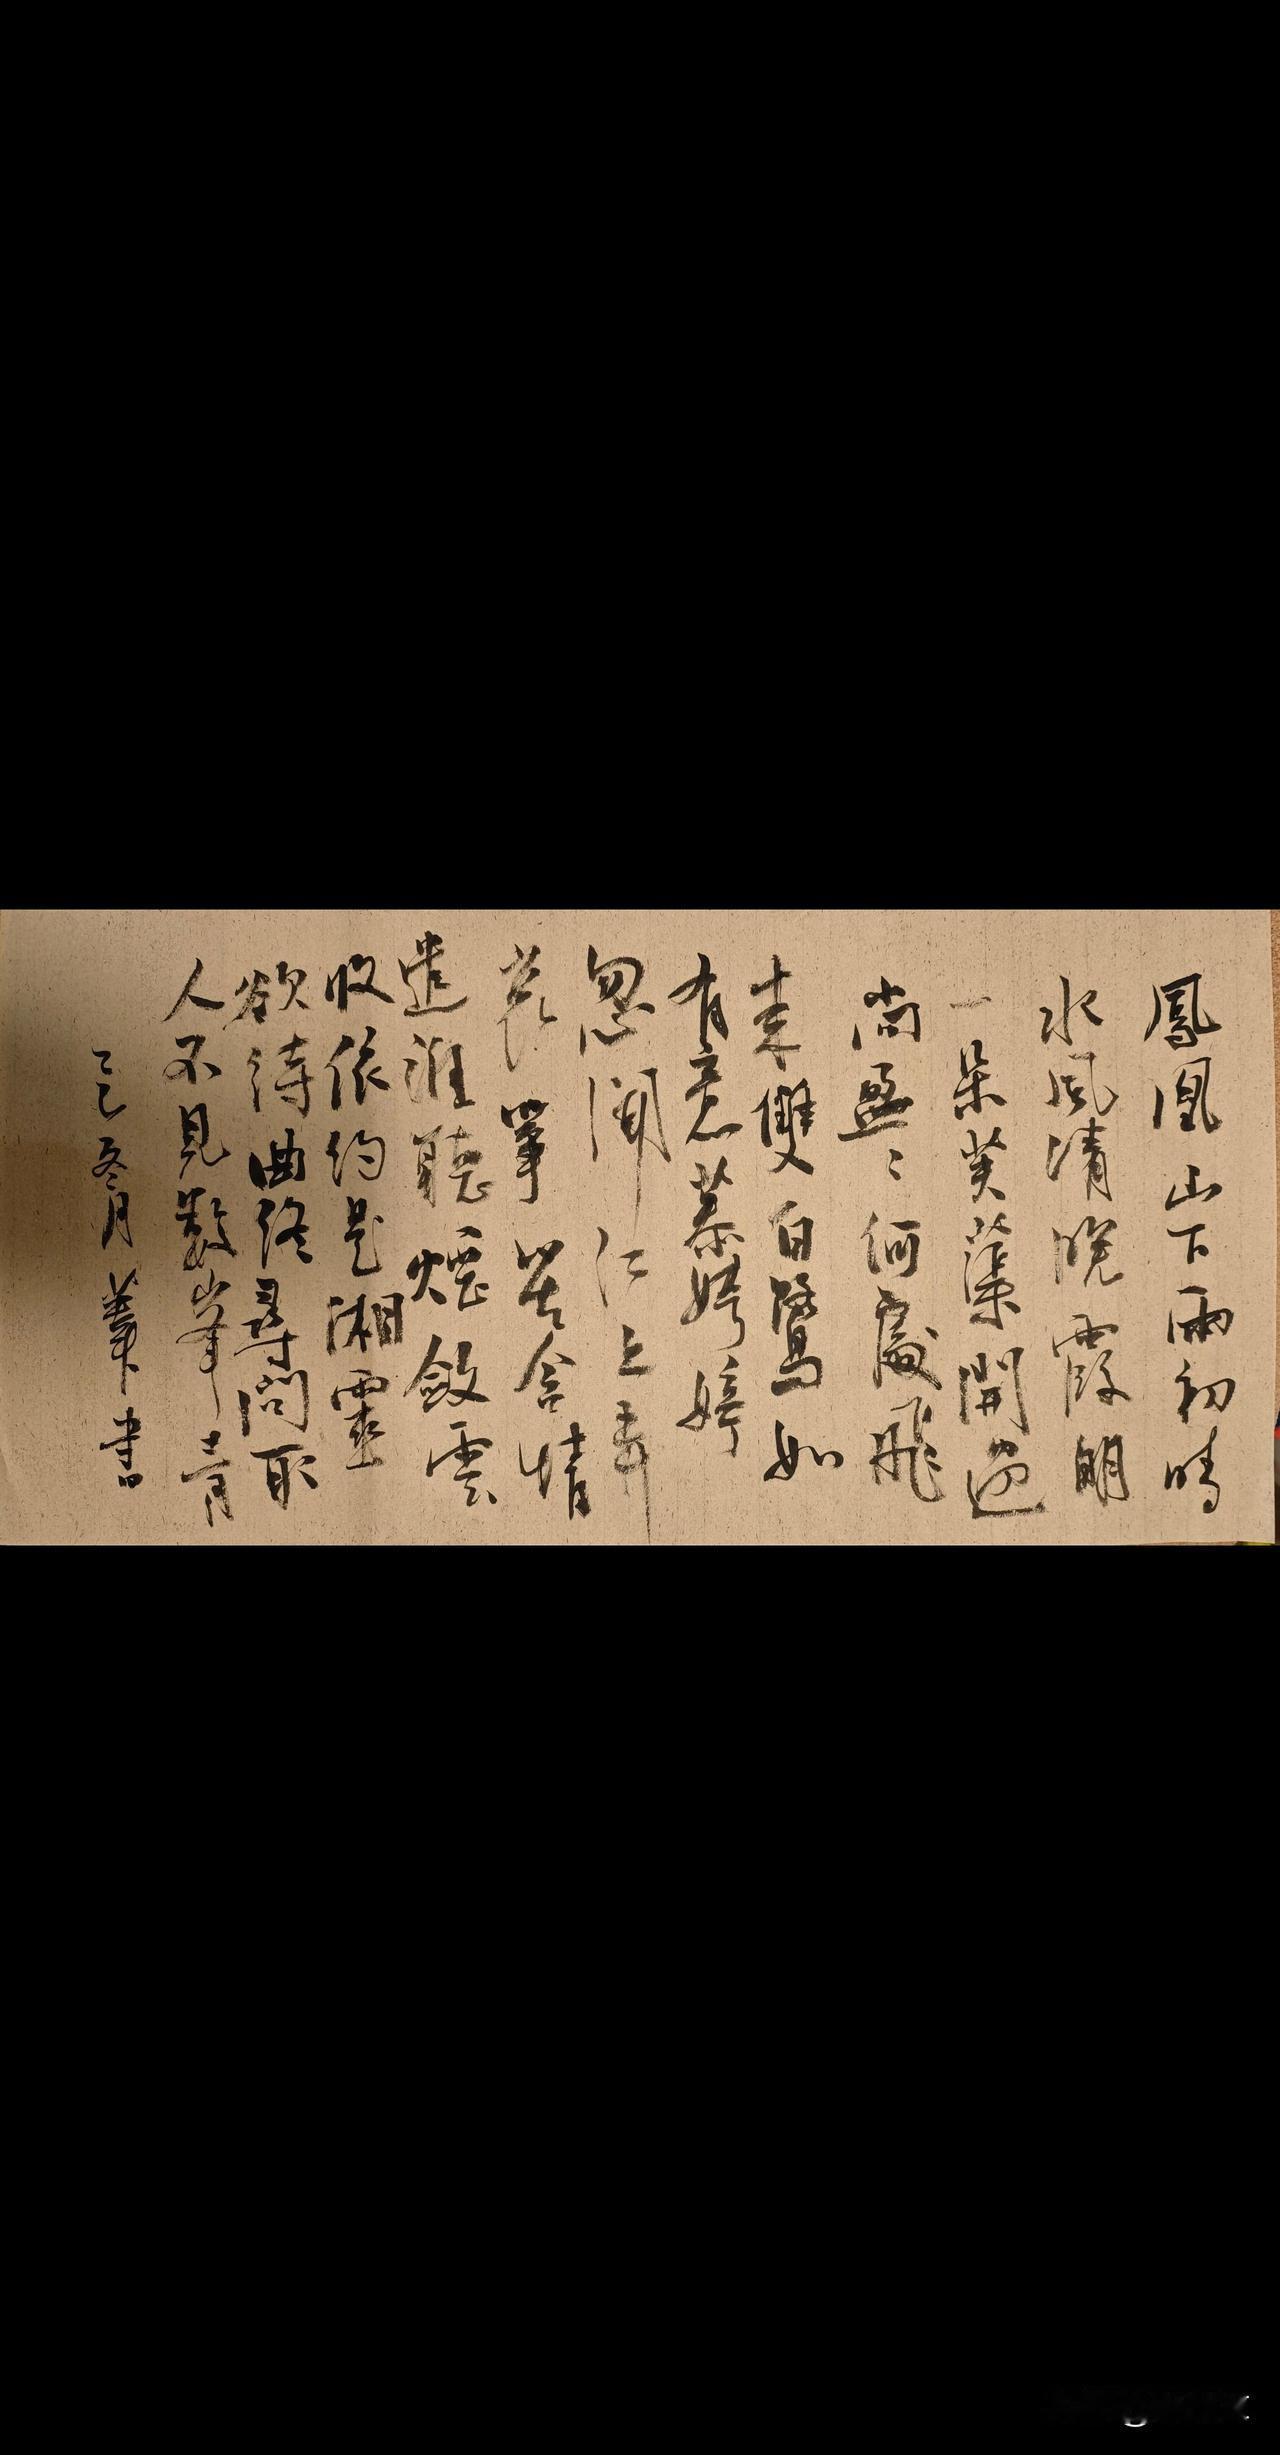 鳳凰山下雨初晴
水風清晚霞明
一朵芙蕖開過
尚盈〻何處飛
來雙白鷺如
有意慕娉婷
忽聞江上弄
哀箏苦含情
遣誰聽煙斂雲
收依約是湘靈
欲待曲終尋問取
人不見數峯青
乙巳冬月 書